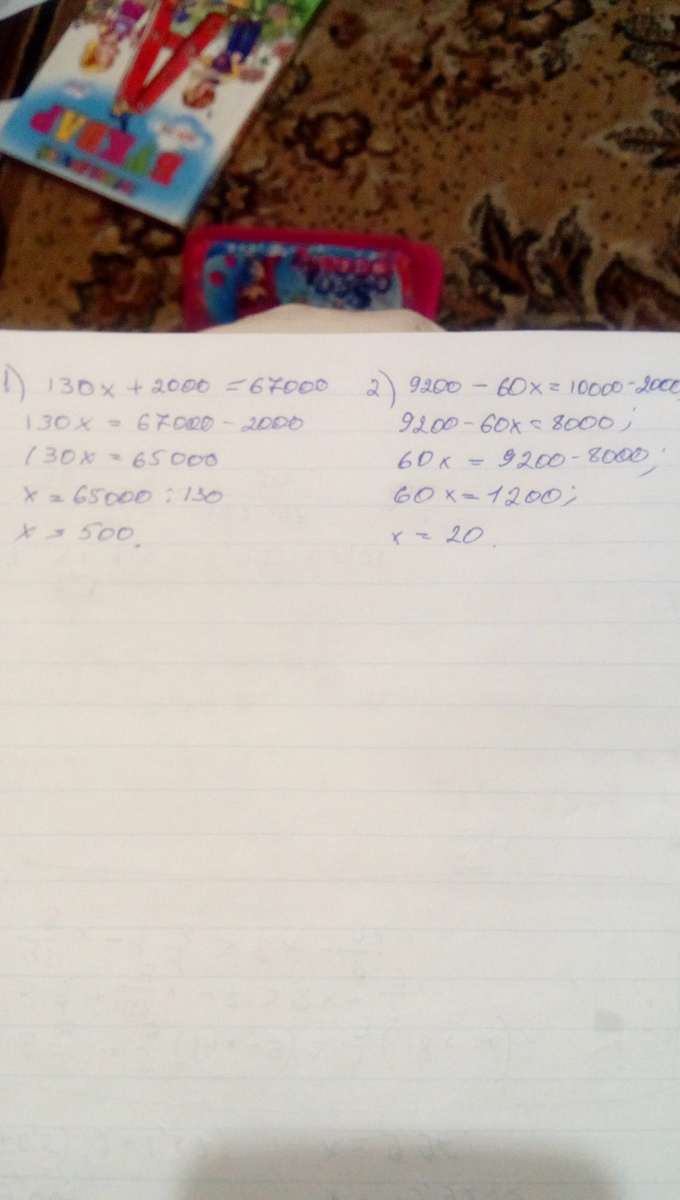 БУКВАР
1) 130x + 2000 = 67000
130x = 67000 - 2000
130x = 65000
x = 65000 : 130
x = 500.
2) 9200 - 60x = 10000 - 2000;
9200 - 60x = 8000;
60x = 9200 - 8000;
60x = 1200;
x = 20.